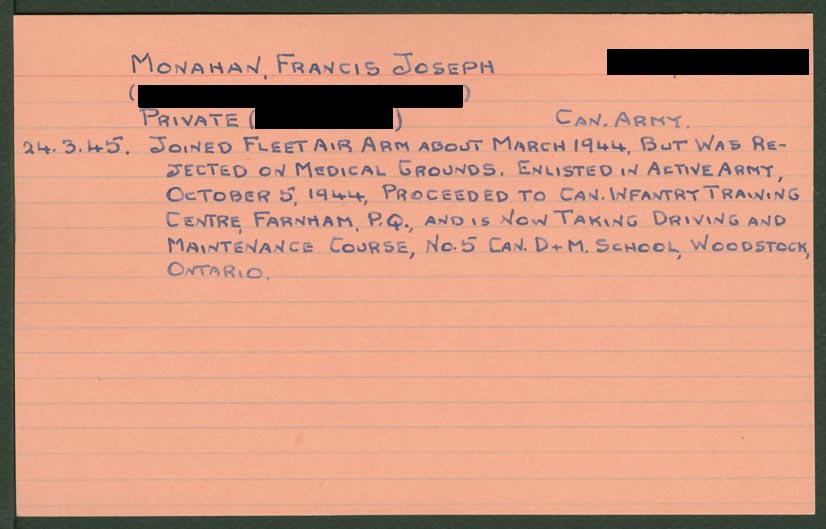 MONAHAN, FRANCIS JOSEPH
( )
PRIVATE ( ) CAN. ARMY.
24.3.45. JOINED FLEET AIR ARM ABOUT MARCH 1944, BUT WAS RE-
JECTED ON MEDICAL GROUNDS. ENLISTED IN ACTIVE ARMY,
OCTOBER 5, 1944, PROCEEDED TO CAN. INFANTRY TRAINING
CENTRE, FARNHAM, P.Q., AND IS NOW TAKING DRIVING AND
MAINTENANCE COURSE, NO.5 CAN. D+M. SCHOOL, WOODSTOCK,
ONTARIO.